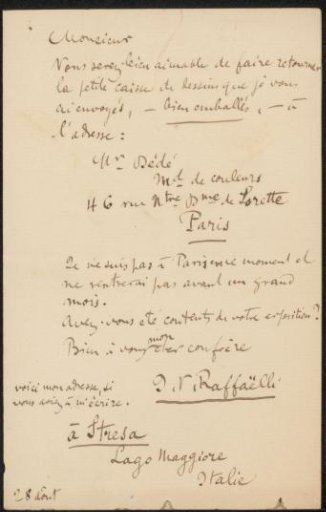 Monsieur
Vous serez bien aimable de faire retourner
la petite caisse de dessins que je vous
ai envoyés, — bien emballés, — à
l'adresse :
Mr Dédé
Md de couleurs
46 rue Ntre Dme de Lorette
Paris
Je ne suis pas à Paris en ce moment et
ne rentrerai pas avant un grand
mois.
Avez-vous été contents de votre exposition ?
Bien à vous mon cher confrère
J. F. Raffaëlli
voici mon adresse, si
vous aviez à m'écrire.
à Stresa
Lago Maggiore
Italie
28 août